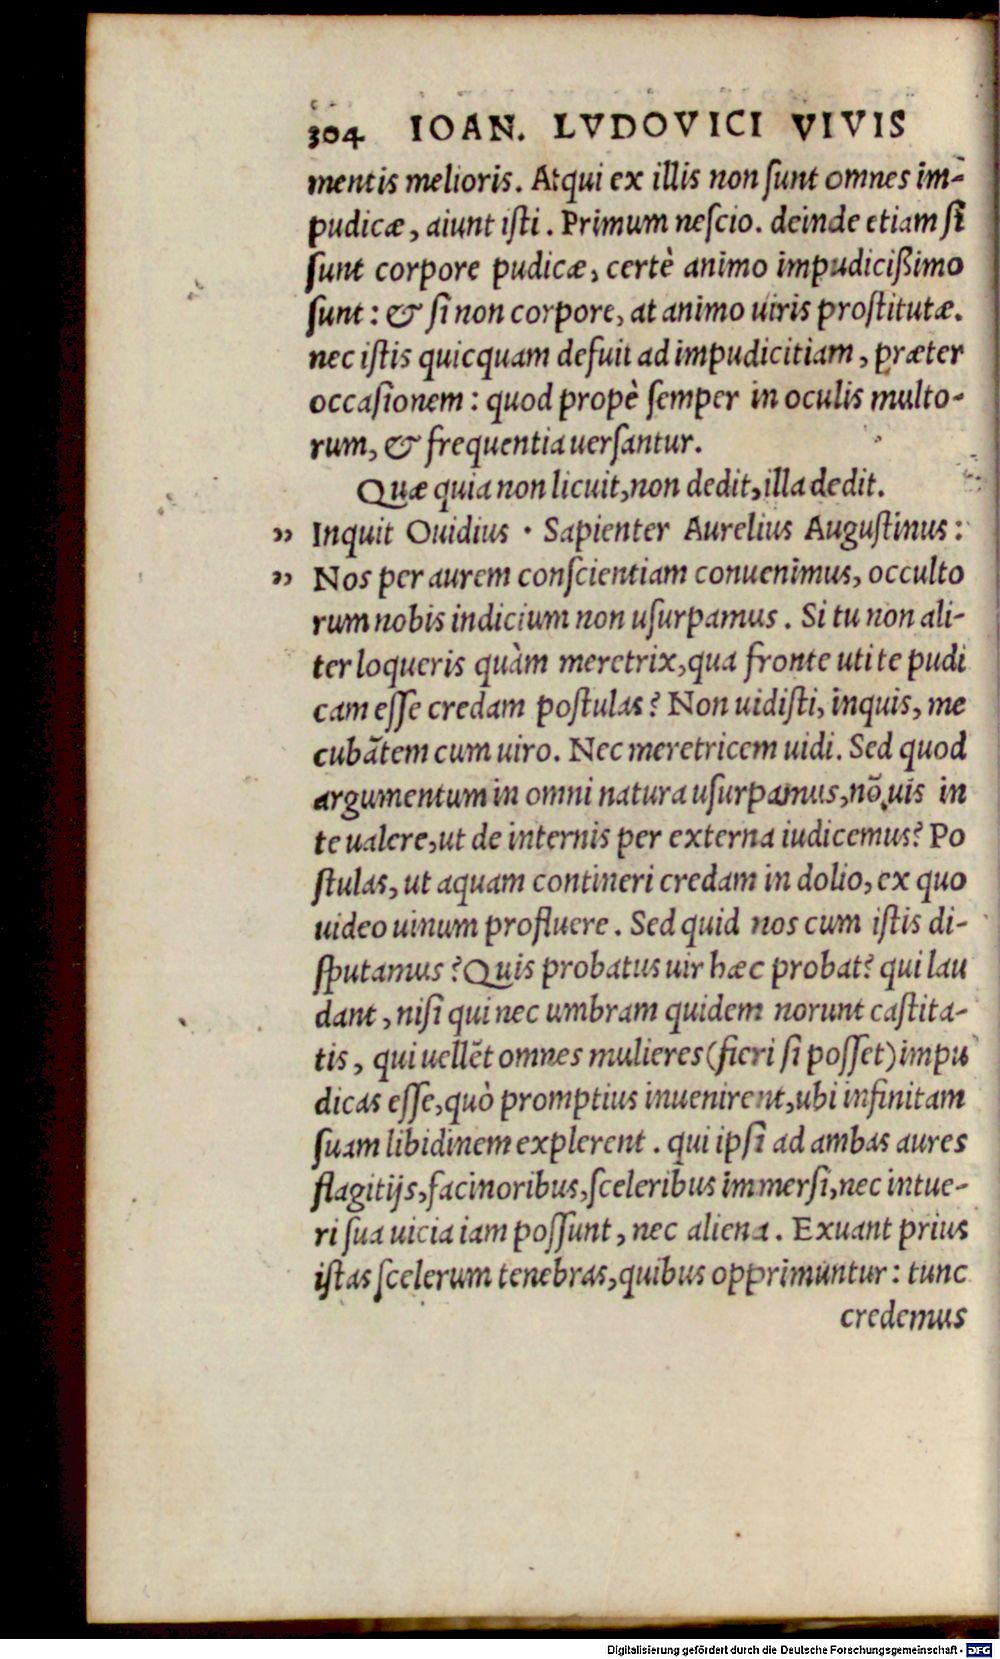 304 IOAN. LVDOVICI VIVIS
mentis melioris. Atqui ex illis non ſunt omnes im-
pudicæ, aiunt iſti. Primum neſcio. deinde etiam ſi
ſunt corpore pudicæ, certè animo impudicißimo
ſunt: & ſi non corpore, at animo uiris proſtitutæ.
nec iſtis quicquam defuit ad impudicitiam, præter
occaſionem: quod propè ſemper in oculis multo-
rum, & frequentia uerſantur.
Quæ quia non licuit, non dedit, illa dedit.
„ Inquit Ouidius · Sapienter Aurelius Auguſtinus:
„ Nos per aurem conſcientiam conuenimus, occulto
rum nobis indicium non uſurpamus. Si tu non ali-
ter loqueris quàm meretrix, qua fronte uti te pudi
cam eſſe credam poſtulas? Non uidiſti, inquis, me
cubãtem cum uiro. Nec meretricem uidi. Sed quod
argumentum in omni natura uſurpamus, nõ uis in
te ualere, ut de internis per externa iudicemus? Po
ſtulas, ut aquam contineri credam in dolio, ex quo
uideo uinum profluere. Sed quid nos cum iſtis di-
ſputamus? Quis probatus uir hæc probat? qui lau
dant, niſi qui nec umbram quidem norunt caſtita-
tis, qui uellẽt omnes mulieres (fieri ſi poſſet) impu
dicas eſſe, quò promptius inuenirent, ubi infinitam
ſuam libidinem explerent. qui ipſi ad ambas aures
flagitijs, facinoribus, ſceleribus immerſi, nec intue-
ri ſua uicia iam poſſunt, nec aliena. Exuant prius
iſtas ſcelerum tenebras, quibus opprimuntur: tunc
credemus
Digitalisierung gefördert durch die Deutsche Forschungsgemeinschaft - DFG